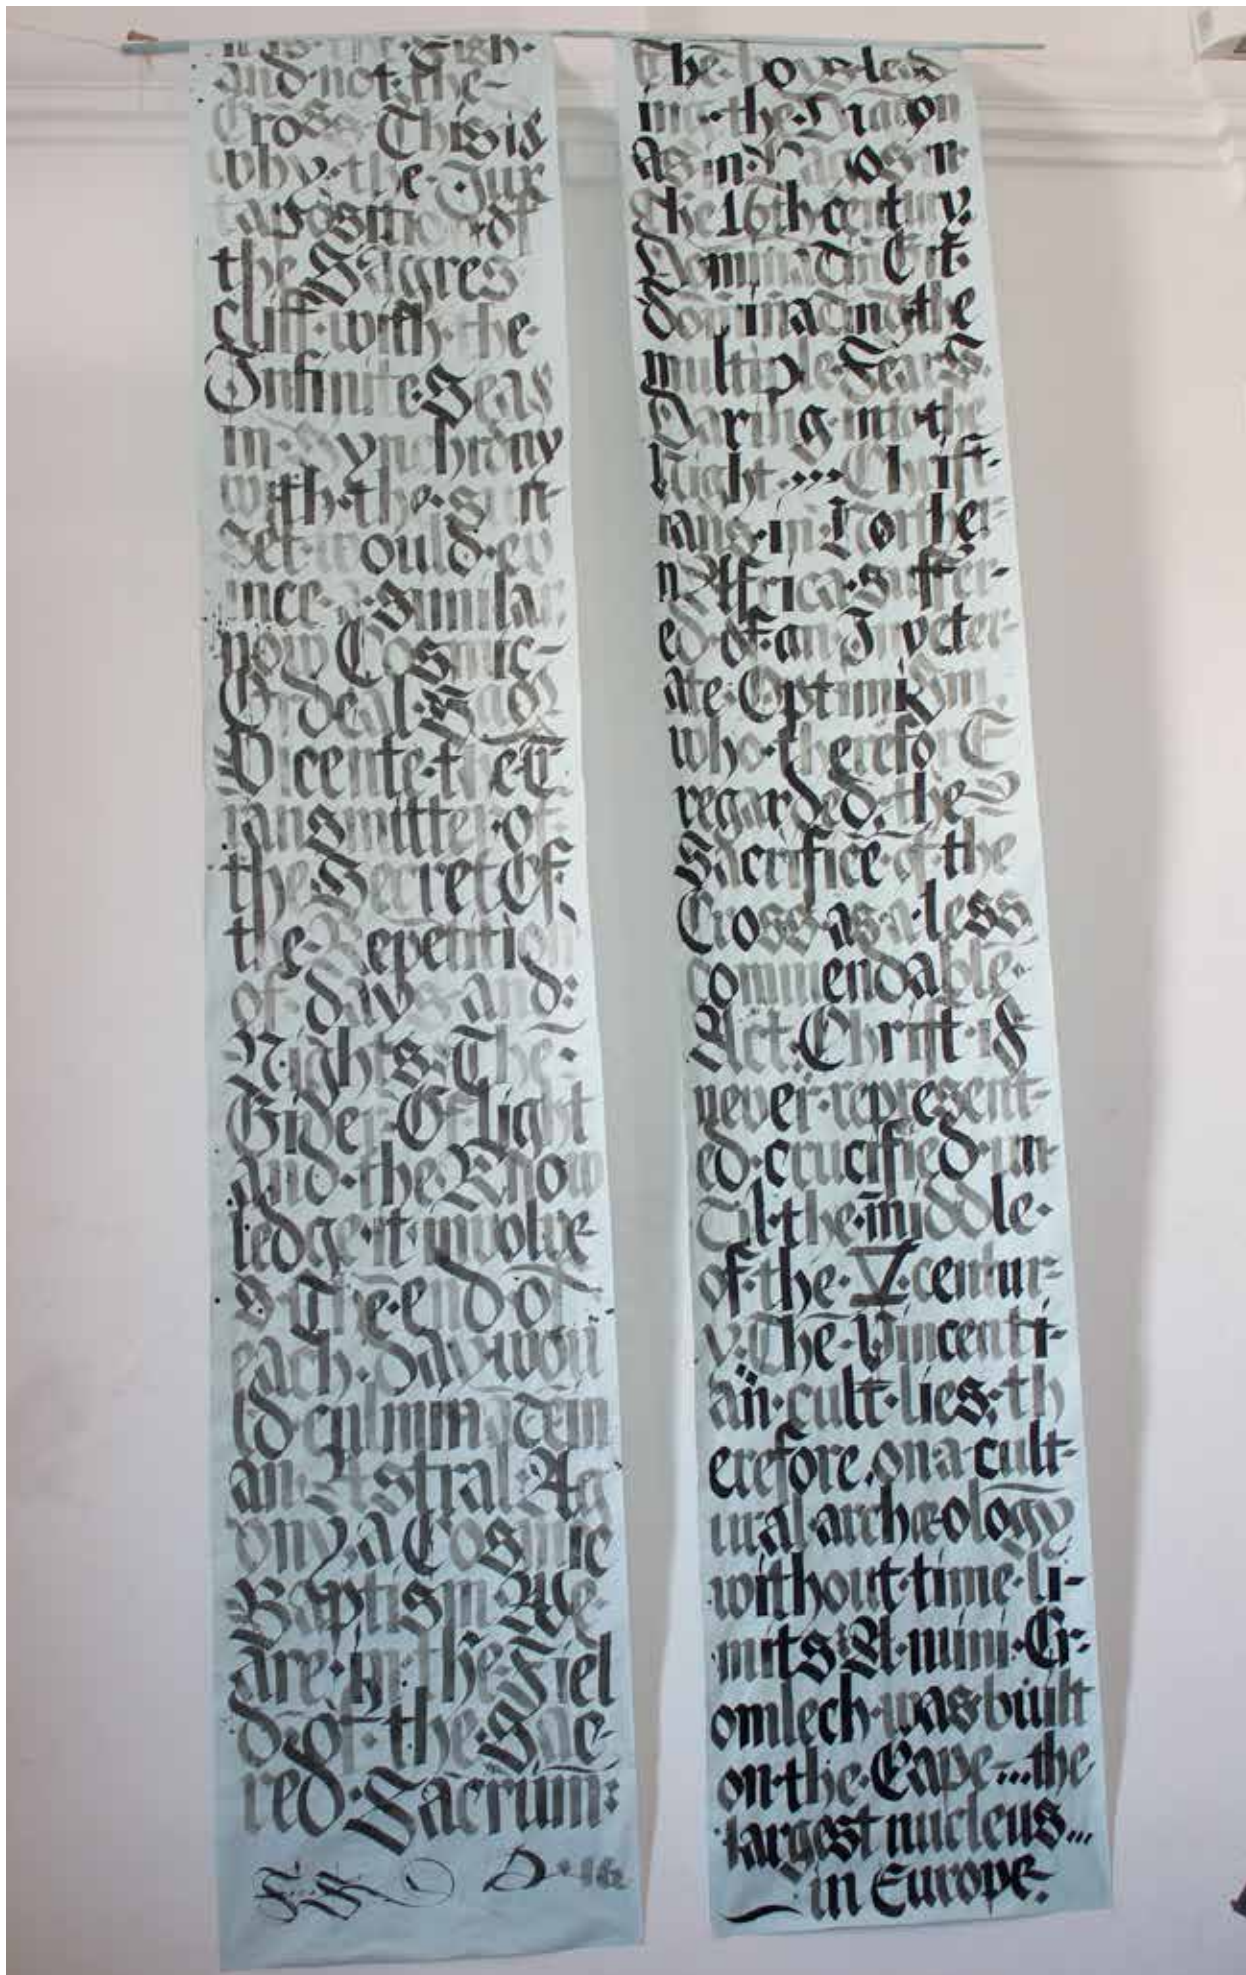 was·the·Fish·
and·not·the-
Cross·This is
why·the·Jux
taposition·of
the·Sagres
cliff·with·the·
Infinite·Seas
in·synchrony
with·the·sun-
set·would·ev
ince·a·similar
now Cosmic-
Ordeal·Sao
Vicente·the T
ransmitter·of
the·Secret Of
the·Repetition
of·days·and:
Nights·The-
Gider·Of·Light
and·the·Know
ledge·it·involve
s·The·end·of
each·day·wou
ld·culminate in
an·Astral·Ag
ony,a Cosmic
Baptism·We·
are·in·the·Fiel
d·of·the·Sac-
red·Sacrum:
D·16
The lead
into·the·Dragon
As·in
the 16th century.
dominating the
multiple·Fears.
Daring·into·the
Night...Christ-
ians·in·Norther-
n Africa·suffer-
ed·of·an·Inveter-
ate·Optimism.
who·therefore
regarded·the
Sacrifice·of·the
Cross·as·a·less
commendable·
Act·Christ·is
never·represent-
ed·crucified·un-
til·the·middle·
of·the·V·centur-
y·The·Vincenti-
an·cult·lies·th
erefore,on·a·cult-
ural·archæology
without·time·li-
mits·A·mini·Cr-
omlech·was·built
on·the·Cape...the
largest nucleus...
in Europe.